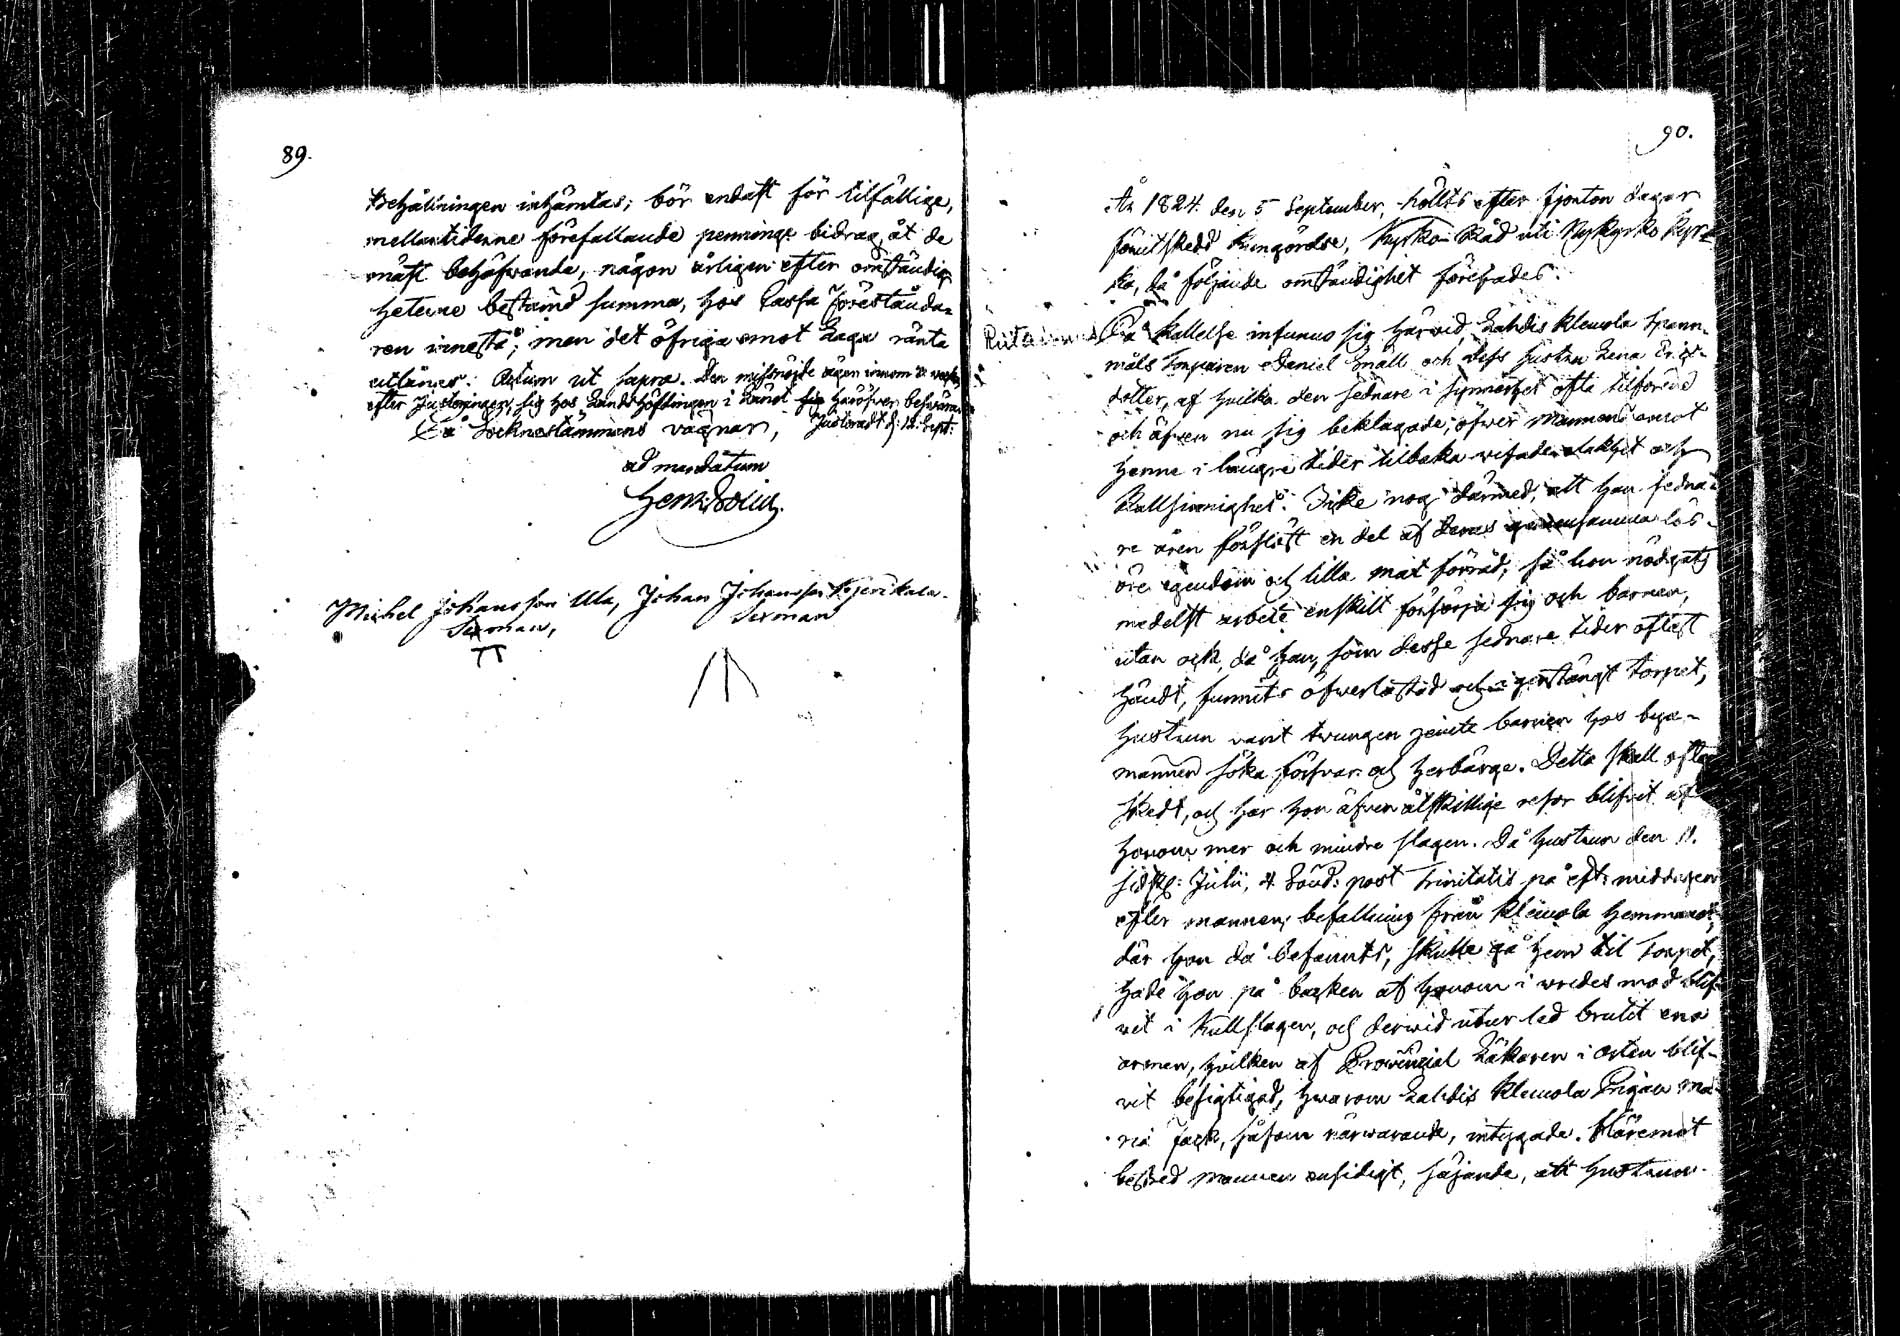 89.
Behållningen inhämtas; bör endast för tilfällige,
mellantiderne förefallande penninge bidrag åt de
mäst behöfwande, någon årligen efter omständig
heterne bestämd summa, hos Cassa Förestånda=
ren innestå; men det öfriga emot Laga ränta
utlånes. Actum ut supra. Den missnöjde ägen innom
efter Justeringen, sig hos Landshöfdingen i Länet häröfver beswära.
På Socknestämmans vägnar, Justeradt d: 12. Sept:
ad mandatum
Henr:
Michel Johansson Ula, Johan Johansson
Sexman, Sexman
90.
År 1824. den 5 September, hölts efter fjorton dagar
förutskedd kungörelse, Kyrko-Råd uti Nykyrko Kyr=
ka, då följande omständighet förehades:
På kallelse infunno sig härwid, Lahdis Klemola Spann-
måls Torparen Daniel Snäll och dess hustru Lena Erics-
dotter, af hvilka den sednare i synnerhet ofta tilförene
och äfven nu sig beklagade, öfwer Mannens emot
henne i längre tider tilbaka wisade elakhet och
Kallsinnighet. Icke nog därmed, att han sedna-
re åren förslöst en del af deras gemensamma lös-
öre egendom och lilla mat förråd, så hon nödgats
medelst arbete enskilt försörja sig och barnen,
utan ock, då han, som desse sednare tider oftast
händt, funnits öfwerlastad och igenstängt torpet,
hustrun varit twungen jemte barnen hos bya-
männen söka försvar och herbärge. Detta skall ofta
skedt, och har hon äfven åtskillige resor blifvit af
honom mer och mindre slagen. Då hustrun den 11.
sidstl: Julii, 4 Sönd: post Trinitatis på eft: middagen
efter mannens befallning från Klemola hemmanet,
där hon då befunnits, skulle gå hem til Torpet,
hade hon på backen af honom i wredes mod blif-
vit i kullslagen, och derwid utur led brutit ena
armen, hvilken af Provincial Läkaren i orten blif-
vit besigtigad, hwarom Lahdis Klemola Pigan Ma-
ria Jack, såsom närwarande, intygade. Häremot
bestred mannen ensidigt, säjande, att hustrun